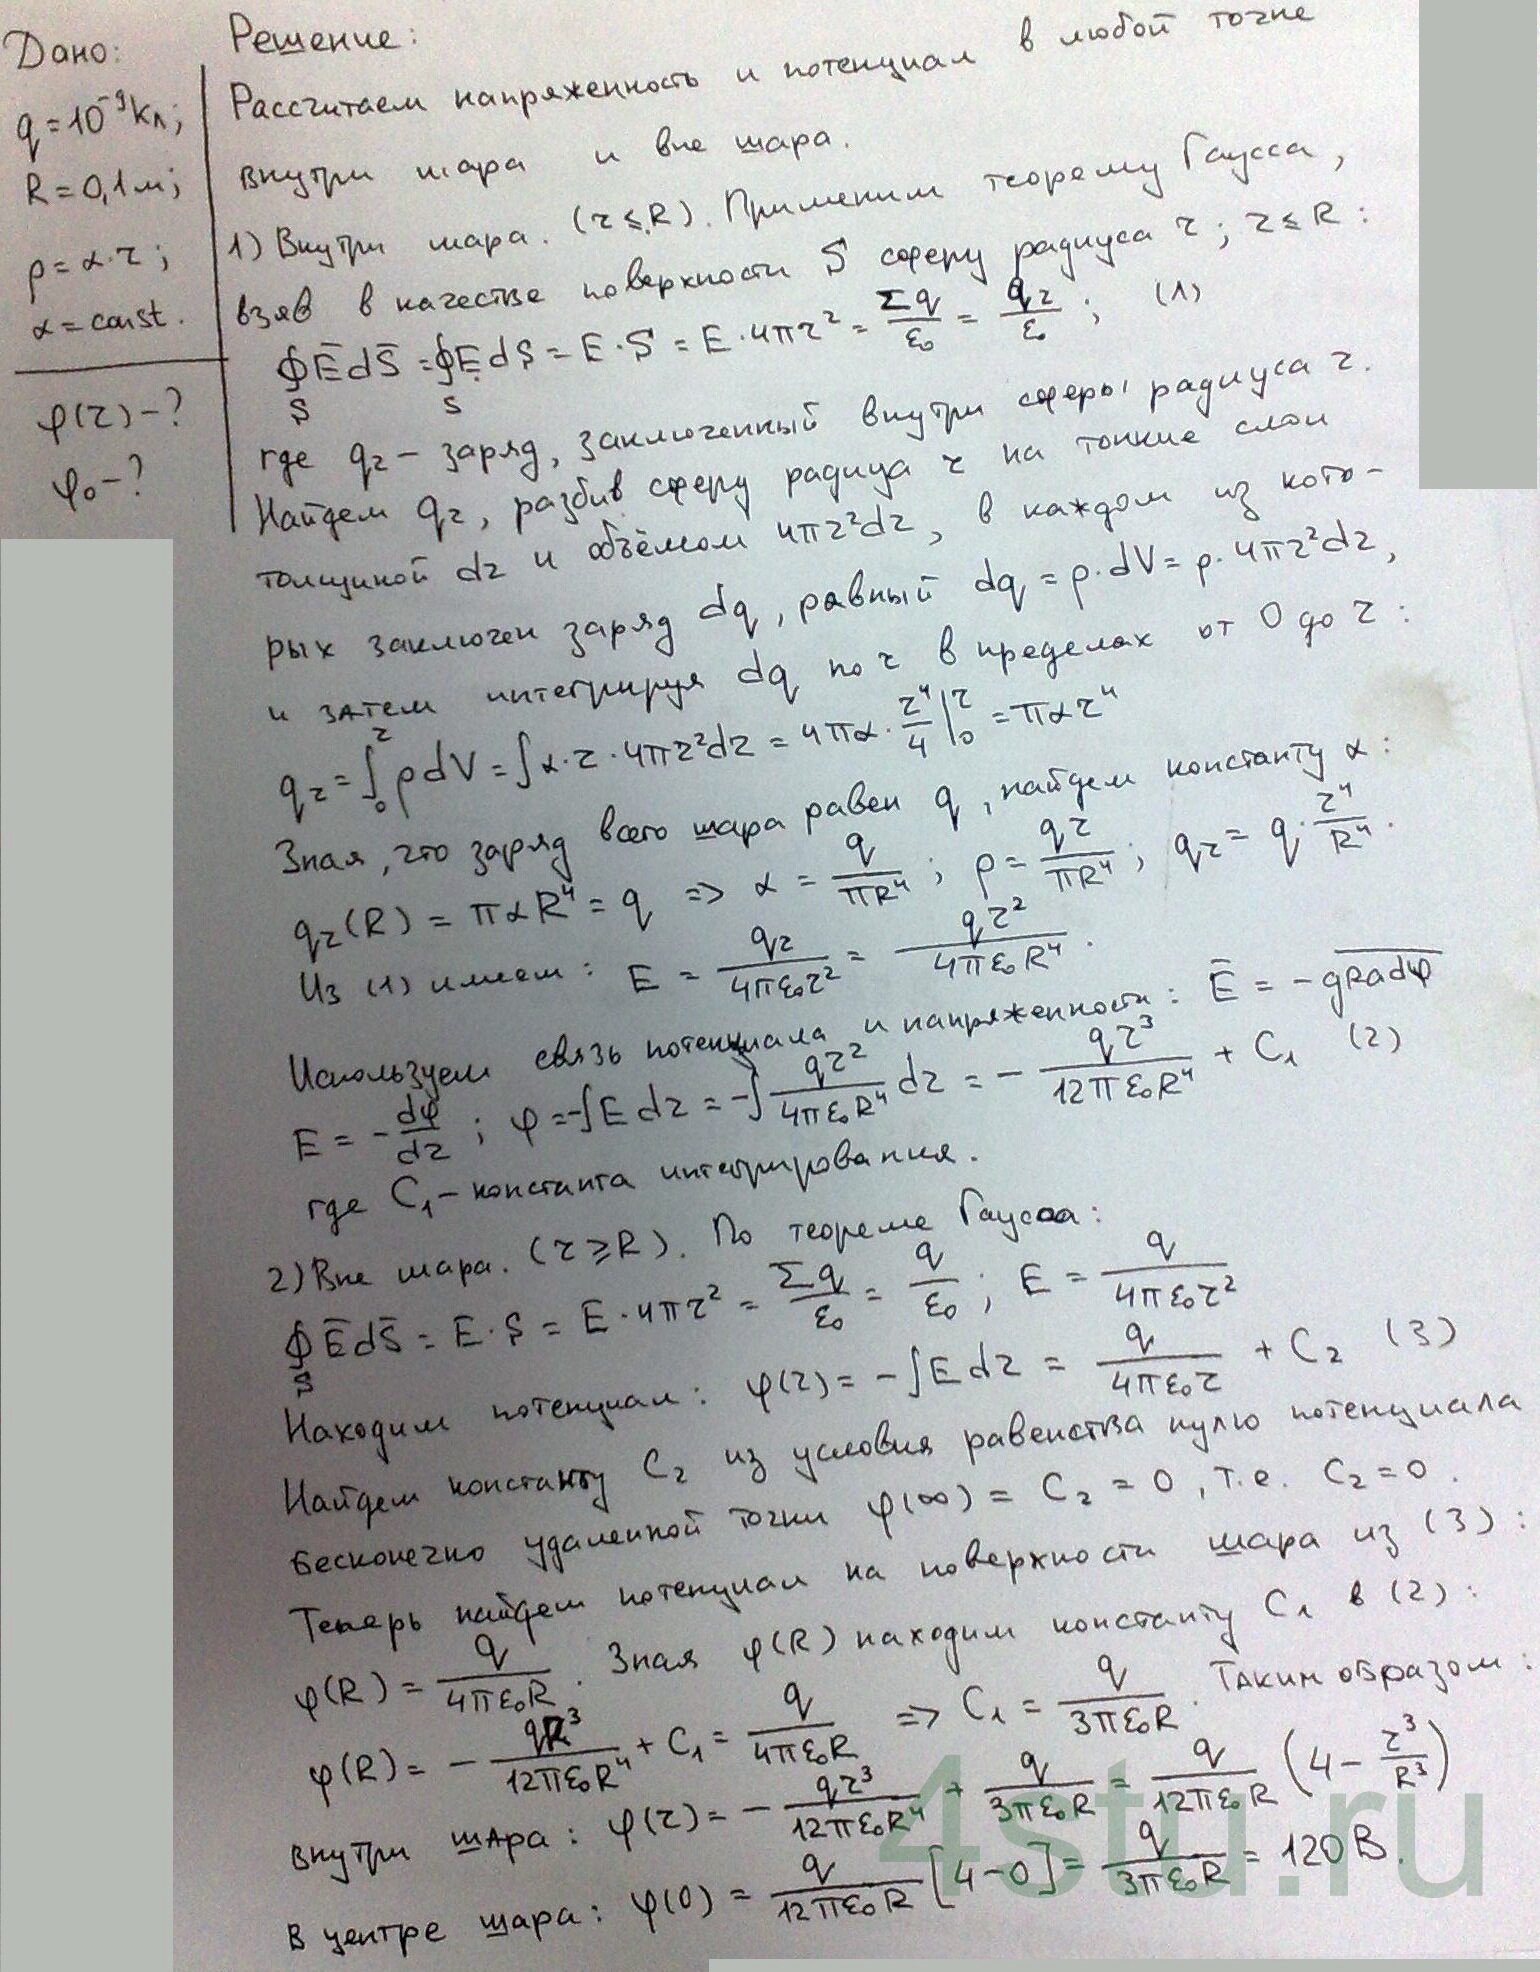 Дано:
q = 10⁻⁹ Кл;
R = 0,1 м;
ρ = α·r;
α = const.
φ(r) - ?
φ₀ - ?
Решение:
Рассчитаем напряженность и потенциал в любой точке
внутри шара и вне шара.
1) Внутри шара. (r ≤ R). Применим теорему Гаусса,
взяв в качестве поверхности S сферу радиуса r; r ≤ R:
∮_S E̅dS̅ = ∮_S EdS = E·S = E·4πr² = Σq/ε₀ = q_r/ε₀; (1)
где q_r – заряд, заключенный внутри сферы радиуса r.
Найдем q_r, разбив сферу радиуа r на тонкие слои
толщиной dr и объёмом 4πr²dr, в каждом из кото-
рых заключен заряд dq, равный dq = ρ·dV = ρ·4πr²dr,
и затем интегрируя dq по r в пределах от 0 до r:
q_r = ∫₀^r ρdV = ∫α·r·4πr²dr = 4πα·r⁴/4|₀^r = παr⁴
Зная, что заряд всего шара равен q, найдем константу α:
q_r(R) = παR⁴ = q => α = q/πR⁴; ρ = qr/πR⁴; q_r = q·r⁴/R⁴.
Из (1) имеем: E = q_r/4πε₀r² = qr²/4πε₀R⁴.
Используем связь потенциала и напряженности: E̅ = -gradφ
E = -dφ/dr; φ = -∫Edr = -∫qr²/4πε₀R⁴ dr = -qr³/12πε₀R⁴ + C₁ (2)
где C₁ – константа интегрирования.
2) Вне шара. (r ≥ R). По теореме Гаусса:
∮_S E̅dS̅ = E·S = E·4πr² = Σq/ε₀ = q/ε₀; E = q/4πε₀r²
Находим потенциал: φ(r) = -∫Edr = q/4πε₀r + C₂ (3)
Найдем константу C₂ из условия равенства нулю потенциала
бесконечно удаленной точки φ(∞) = C₂ = 0, т.е. C₂ = 0.
Теперь найдем потенциал на поверхности шара из (3):
φ(R) = q/4πε₀R. Зная φ(R) находим константу C₁ в (2):
φ(R) = -qR³/12πε₀R⁴ + C₁ = q/4πε₀R => C₁ = q/3πε₀R. Таким образом:
внутри шара: φ(r) = -qr³/12πε₀R⁴ + q/3πε₀R = q/12πε₀R (4 - r³/R³)
в центре шара: φ(0) = q/12πε₀R [4-0] = q/3πε₀R = 120 В.
4stu.ru